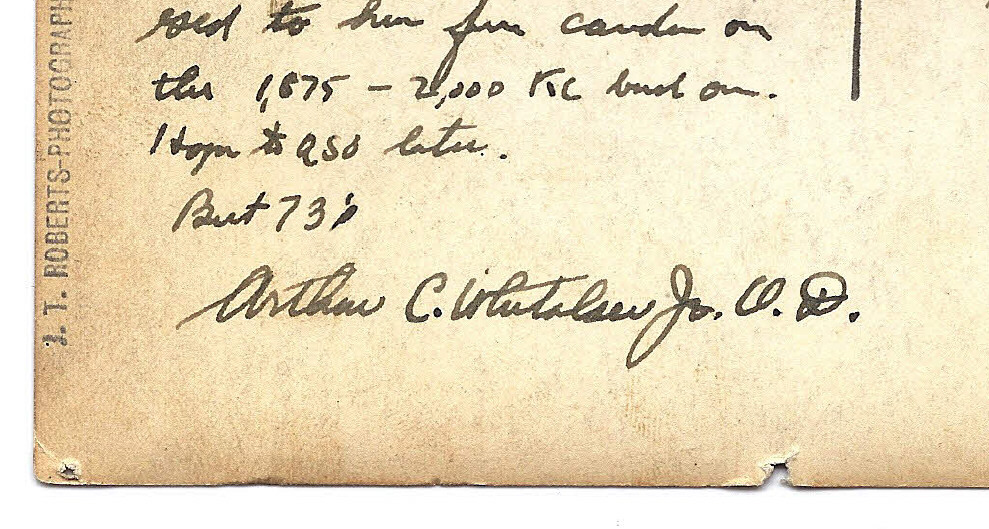 to hear from camden on
the 1,875 – 2,000 KC band om.
Hope to QSO later.
Best 73's
Arthur C. Whitalser Jr. O. D.
J. T. ROBERTS-PHOTOGRAPH